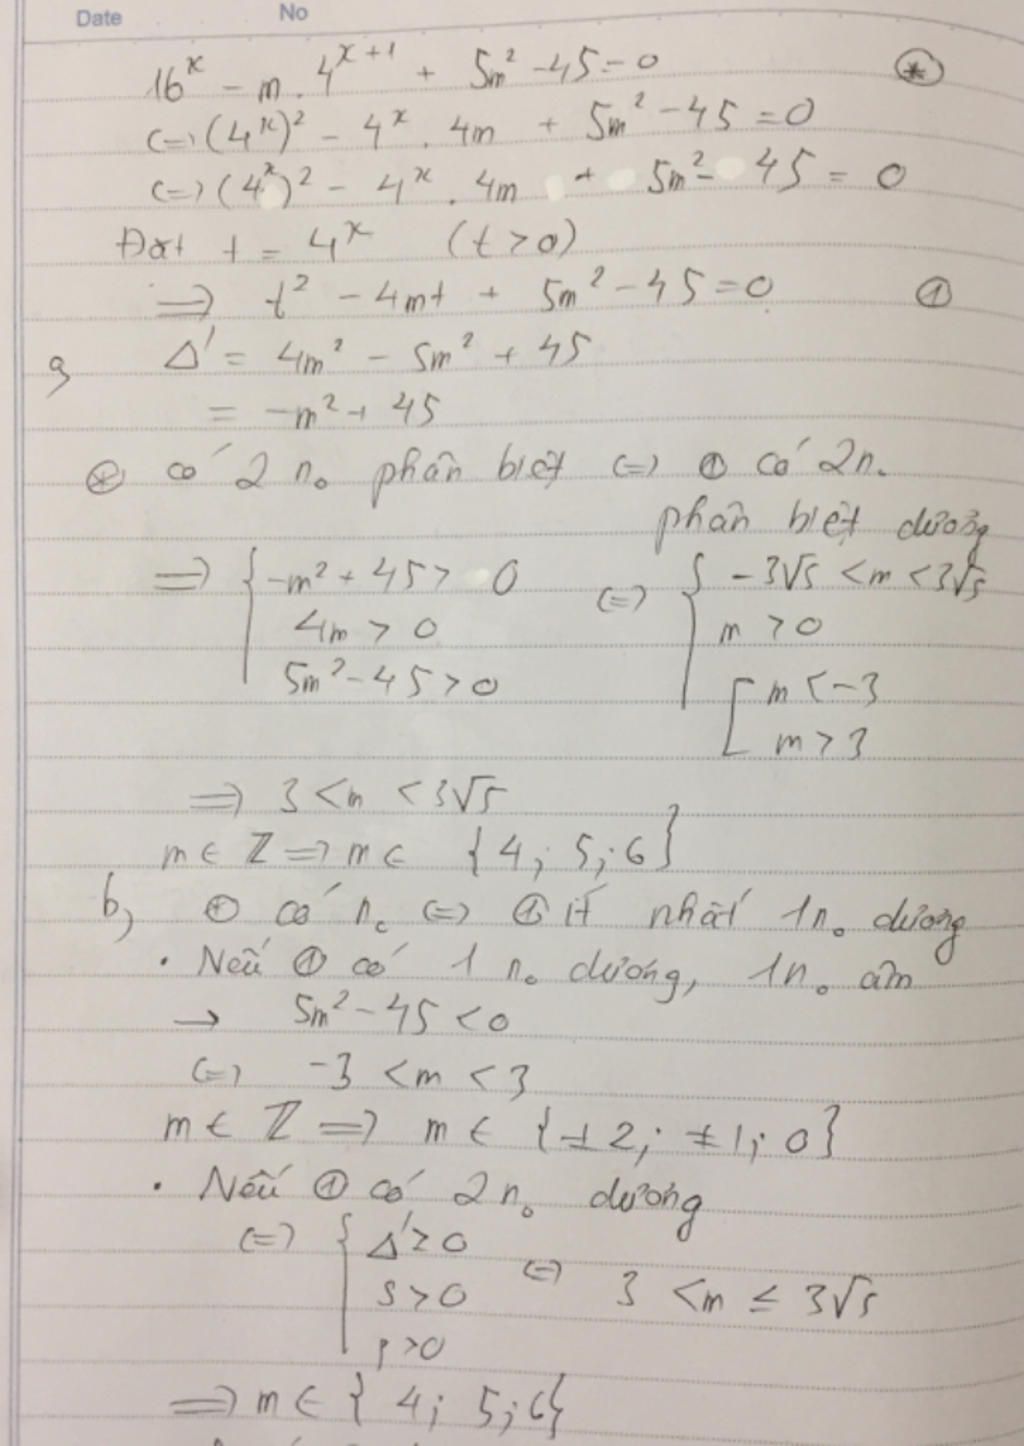 Date No
16^x - m . 4^{x+1} + 5m² - 45 = 0 (*)
(=) (4^x)² - 4^x . 4m + 5m² - 45 = 0
(=) (4^x)² - 4^x . 4m + 5m² - 45 = 0
Đặt t = 4^x (t > 0)
=> t² - 4mt + 5m² - 45 = 0 ①
a, Δ' = 4m² - 5m² + 45
= -m² + 45
(*) có 2 n₀ phân biệt (=) ① có 2n₀
phân biệt dương
=> { -m² + 45 > 0 (=) { -3√5 < m < 3√5
4m > 0 m > 0
5m² - 45 > 0 [ m < -3
m > 3
=> 3 < m < 3√5
m ∈ ℤ => m ∈ {4; 5; 6}
b, (*) có n₀ (=) ① ít nhất 1n₀ dương
• Nếu ① có 1 n₀ dương, 1n₀ âm
→ 5m² - 45 < 0
(=) -3 < m < 3
m ∈ ℤ => m ∈ {±2; ±1; 0}
• Nếu ① có 2n₀ dương
(=) { Δ' ≥ 0
S > 0 (=) 3 < m ≤ 3√5
P > 0
=> m ∈ {4; 5; 6}